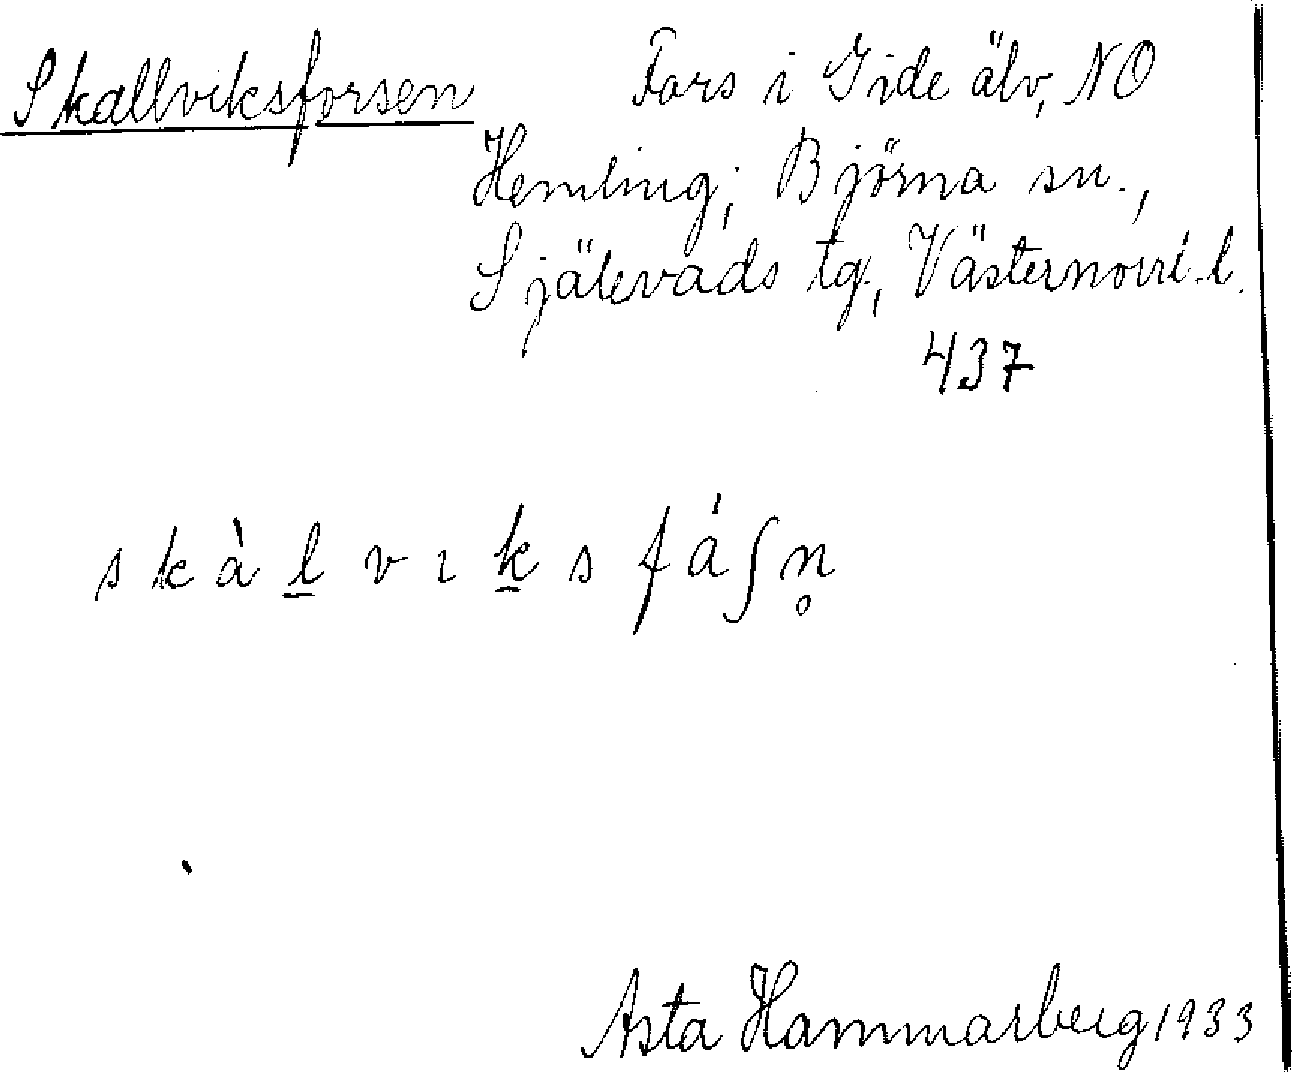 Skallviksforsen Fors i Gide älv, NO
Hemling; Björna sn.,
Själevads tg., Västernorrl. l.
437
s k à l̲ v ı k̲ s f á ʃ n̥
Asta Hammarberg 1933